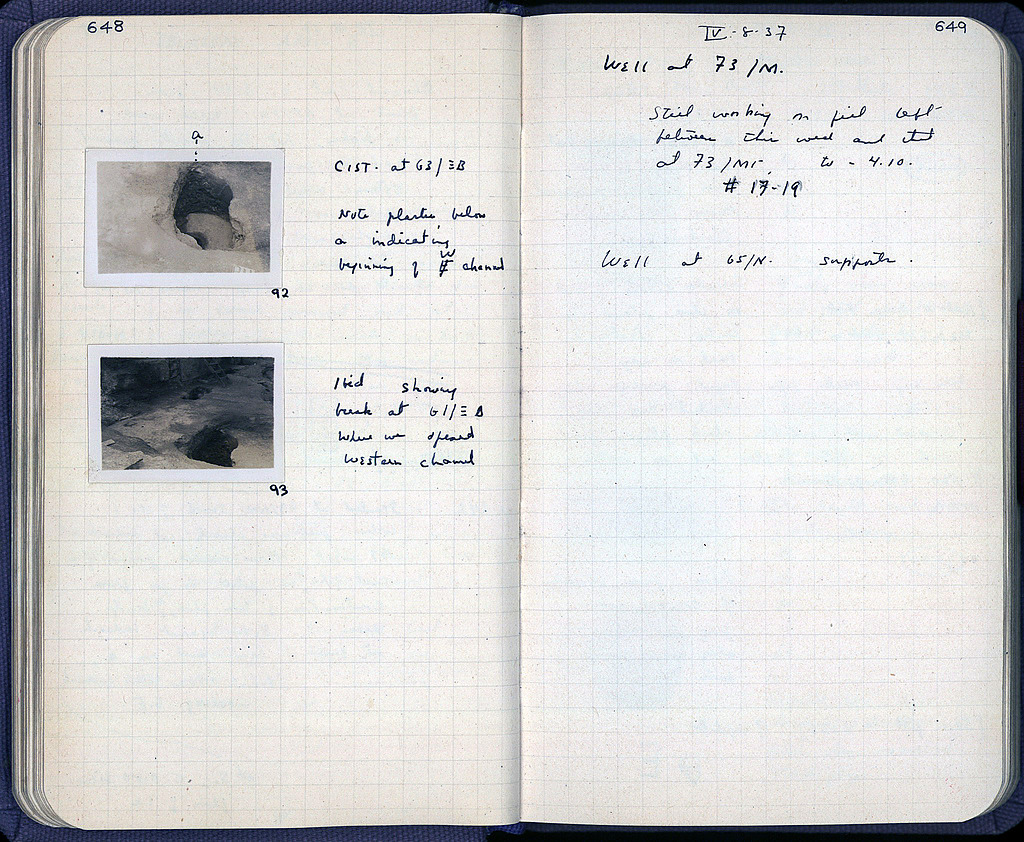 648
a
CIST. at 63/ΞB
Note plaster below
a indicating
beginning of W channel
92
Ibid showing
break at 61/Ξ Δ
where we opened
western channel
93
649
IV-8-37
Well at 73/M.
Still working on fill left
between this well and that
at 73/ΜΓ. to - 4.10.
# 17-19
Well at 65/N. supports.